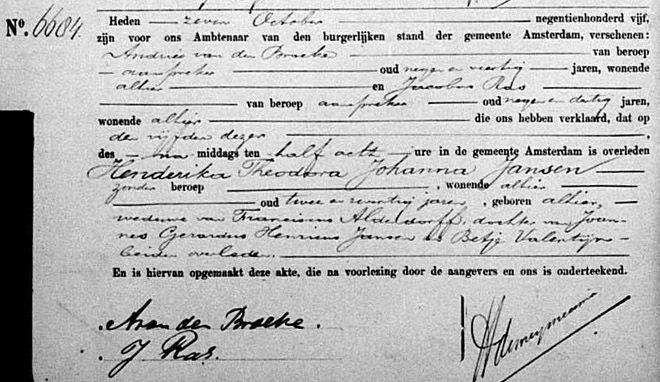 No. 6684.
Heden zeven October negentienhonderd vijf,
zijn voor ons Ambtenaar van den burgerlijken stand der gemeente Amsterdam, verschenen:
Andries van den Broeke van beroep
aanspreker oud negen en veertig jaren, wonende
alhier en Jacobus Ras
van beroep aanspreker oud negen en dertig jaren,
wonende alhier die ons hebben verklaard, dat op
den vijfden dezer,
des na middags ten half acht ure in de gemeente Amsterdam is overleden
Henderika Theodora Johanna Jansen
zonder beroep, wonende alhier
oud twee en jaren, geboren alhier,
weduwe van Franciscus Alderdorff, dochter van Joan-
nes Gerardus Henricus Jansen en Betje Valentijn
beiden overleden.
En is hiervan opgemaakt deze akte, die na voorlezing door de aangevers en ons is onderteekend.
A van den Broeke.
J Ras.